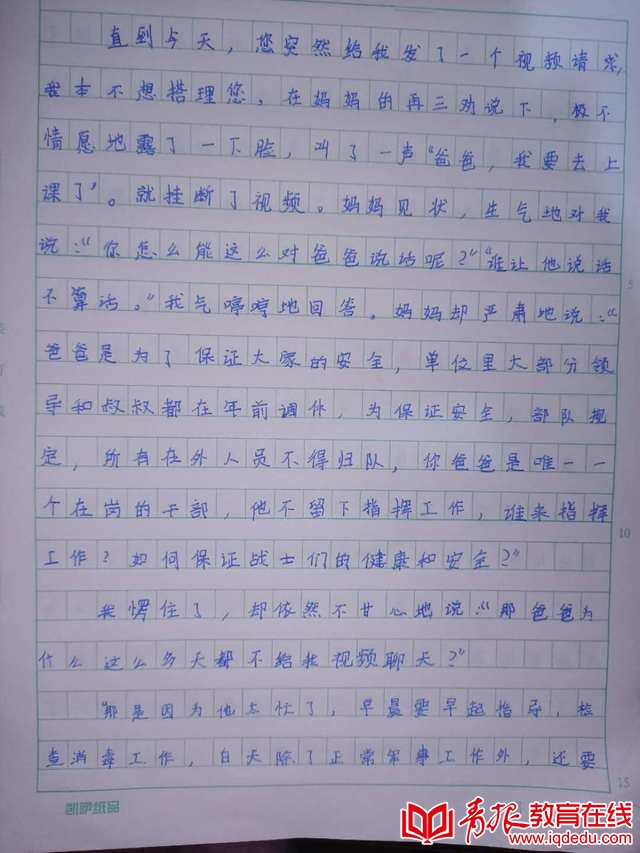 直到今天，您突然给我发了一个视频请求，
我本不想搭理您，在妈妈的再三劝说下，极不
情愿地露了一下脸，叫了一声“爸爸，我要去上
课了”。就挂断了视频。妈妈见状，生气地对我
说：“你怎么能这么对爸爸说话呢？”“谁让他说话
不算话。”我气哼哼地回答。妈妈却严肃地说：“
爸爸是为了保证大家的安全，单位里大部分领
导和叔叔都在年前调休，为保证安全，部队规
定，所有在外人员不得归队，你爸爸是唯一一
个在岗的干部，他不留下指挥工作，谁来指挥
工作？如何保证战士们的健康和安全？”
我愣住了，却依然不甘心地说：“那爸爸为
什么这么多天都不给我视频聊天？”
“那是因为他太忙了，早晨要早起指导，检
查消毒工作，白天除了正常军事工作外，还要
5
10
15
凯萨纸品
青报教育在线
www.iqdedu.com